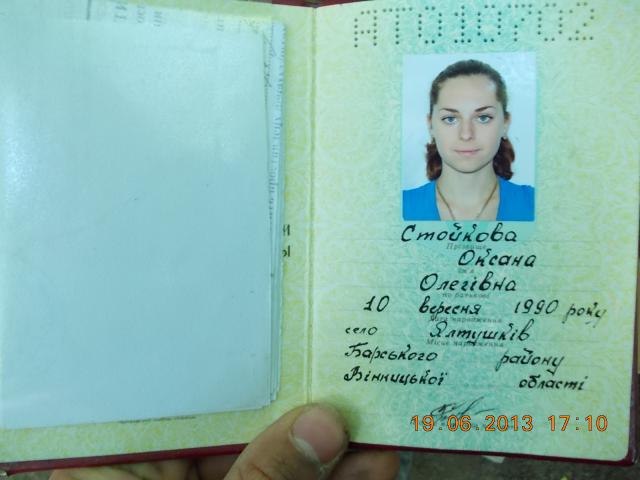 АТ010702
Стойкова
Прізвище
Оксана
Ім'я
Олегівна
по батькові
10 вересня 1990 року
Дата народження
село Ялтушків
Місце народження
Барського району
Вінницької області
19.06.2013 17:10